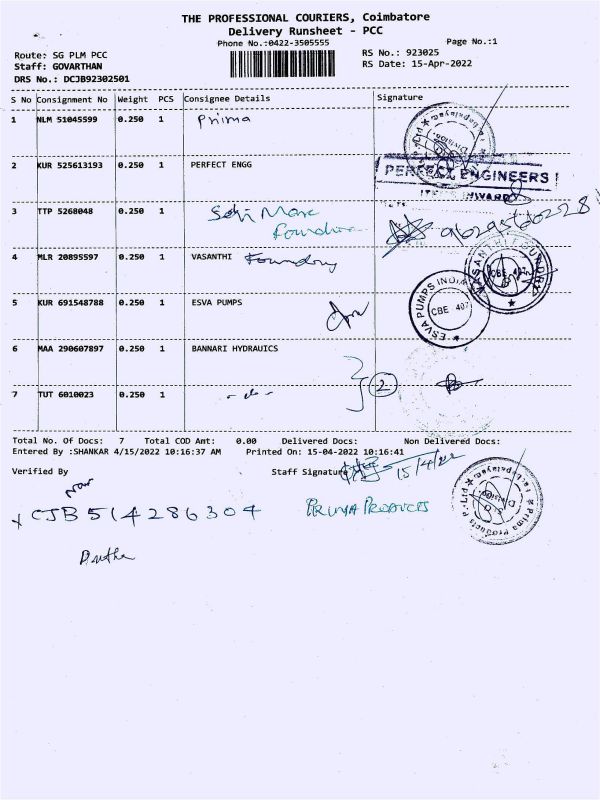 THE PROFESSIONAL COURIERS, Coimbatore
Delivery Runsheet - PCC
Phone No.:0422-3505555
Page No.:1
Route: SG PLM PCC
RS No.: 923025
Staff: GOVARTHAN
RS Date: 15-Apr-2022
DRS No.: DCJB92302501
S No Consignment No Weight PCS Consignee Details Signature
1 NLM 51045599 0.250 1 Prima
2 KUR 525613193 0.250 1 PERFECT ENGG
PERFECT ENGINEERS
INWARD
3 TTP 5268048 0.250 1
4 MLR 20895597 0.250 1 VASANTHI Foundry
VASANTHI FOUNDRY
5 KUR 691548788 0.250 1 ESVA PUMPS
ESVA PUMPS INDIA
CBE 407
6 MAA 290607897 0.250 1 BANNARI HYDRAUICS
2
7 TUT 6010023 0.250 1 - do -
Total No. Of Docs: 7 Total COD Amt: 0.00 Delivered Docs: Non Delivered Docs:
Entered By :SHANKAR 4/15/2022 10:16:37 AM Printed On: 15-04-2022 10:16:41
Verified By Staff Signature 15/4/22
CJB 514286304
Prima Products P. Ltd